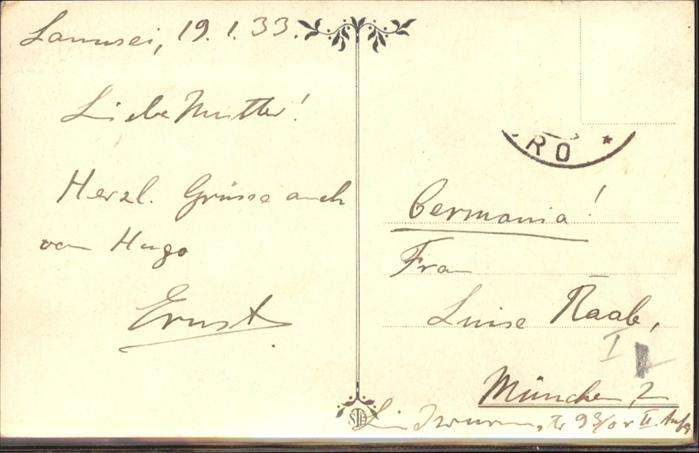 Lanusei, 19.1.33.
Liebe Mutter!
Herzl. Grüsse auch
von Hugo
Ernst.
RO *
Germania!
Frau
Luise Raab,
I
München, 2
Lindwurmstr 93/0 r II. Aufg